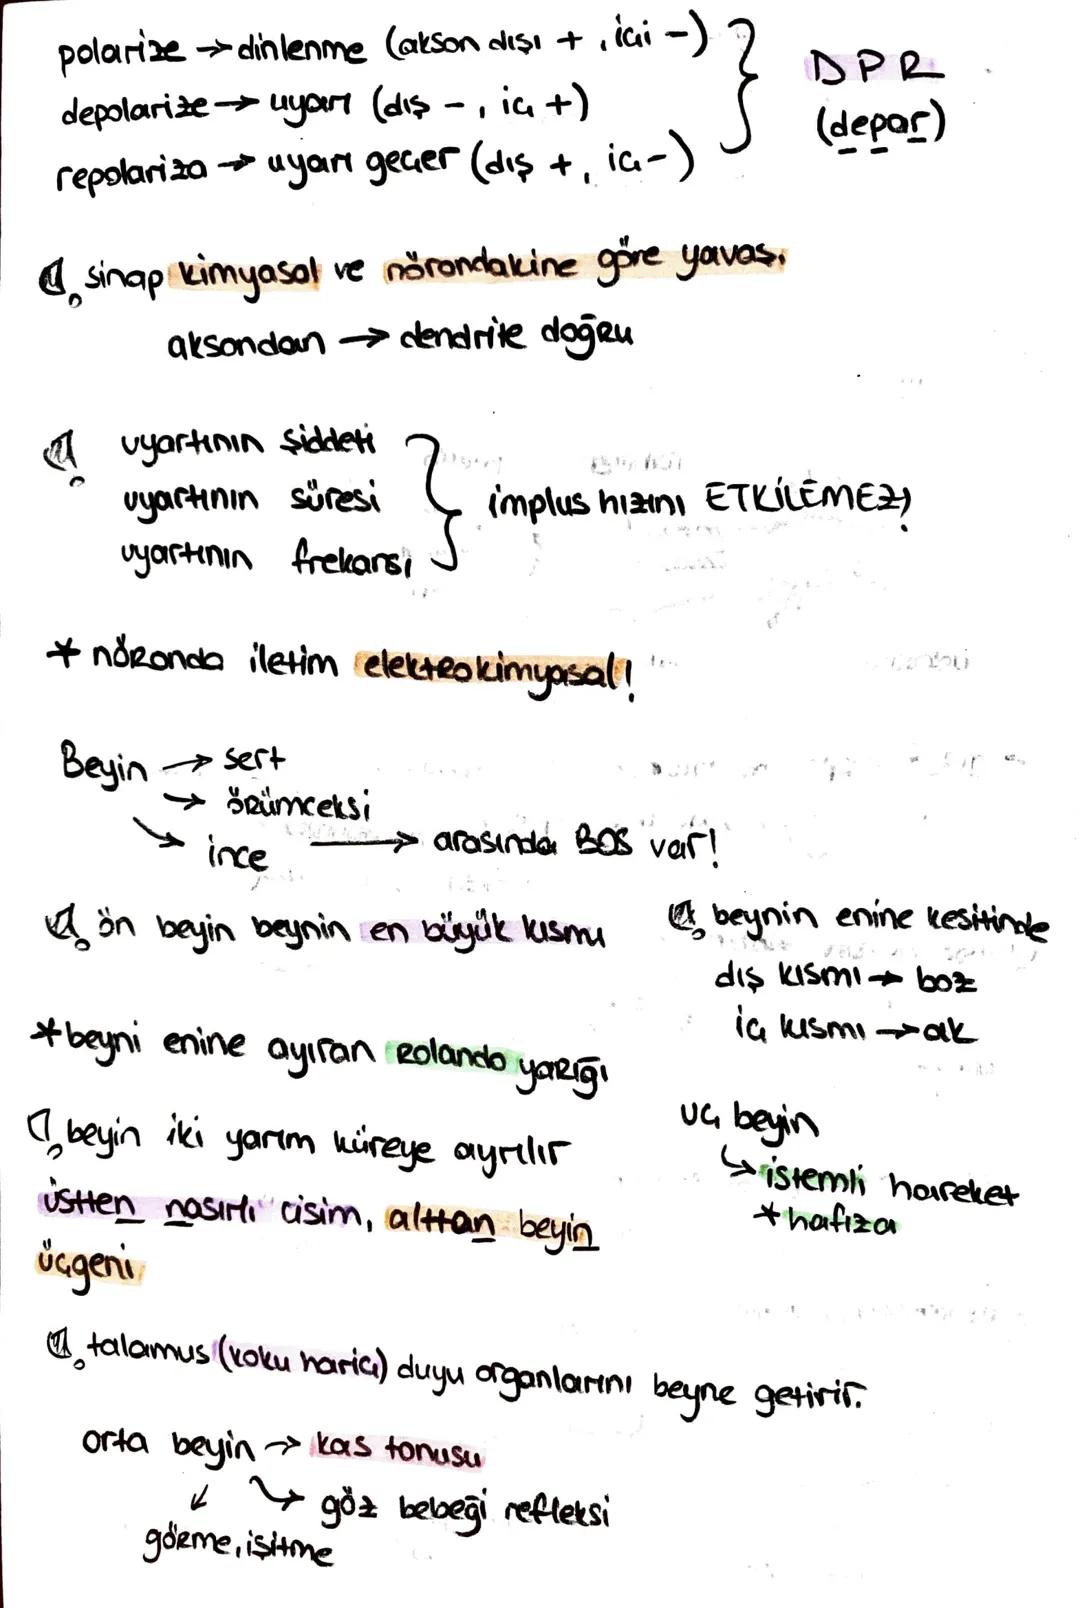 polarize → dinlenme (akson dışı +, içi -)
depolarize → uyarı (dış -, iç +)
repolariza → uyarı geçer (dış +, iç -)
DPR
(depar)
sinap kimyasal ve nörondakine göre yavaş.
aksondan → dendrite doğru
uyartının şiddeti
uyartının süresi
uyartının frekansı
implus hızını ETKİLEMEZ!
* nöronda iletim elektrokimyasal!
Beyin → sert
→ örümceksi
→ ince → arasında BOS var!
ön beyin beynin en büyük kısmı
beynin enine kesitinde
dış kısmı → boz
iç kısmı → ak
* beyni enine ayıran Rolando yarığı
beyin iki yarım küreye ayrılır
üstten nasırlı cisim, alttan beyin
üçgeni
uç beyin
↳ istemli hareket
* hafıza
talamus (koku harici) duyu organlarını beyne getirir.
orta beyin → kas tonusu
↘ göz bebeği refleksi
↙ görme, işitme